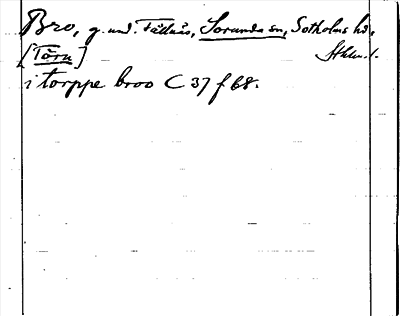 Bro, g. und. Fållnäs, Sorunda sn, Sotholms hd,
Sthlm. l.
[Törn]
i torppe broo C 37 f 68.